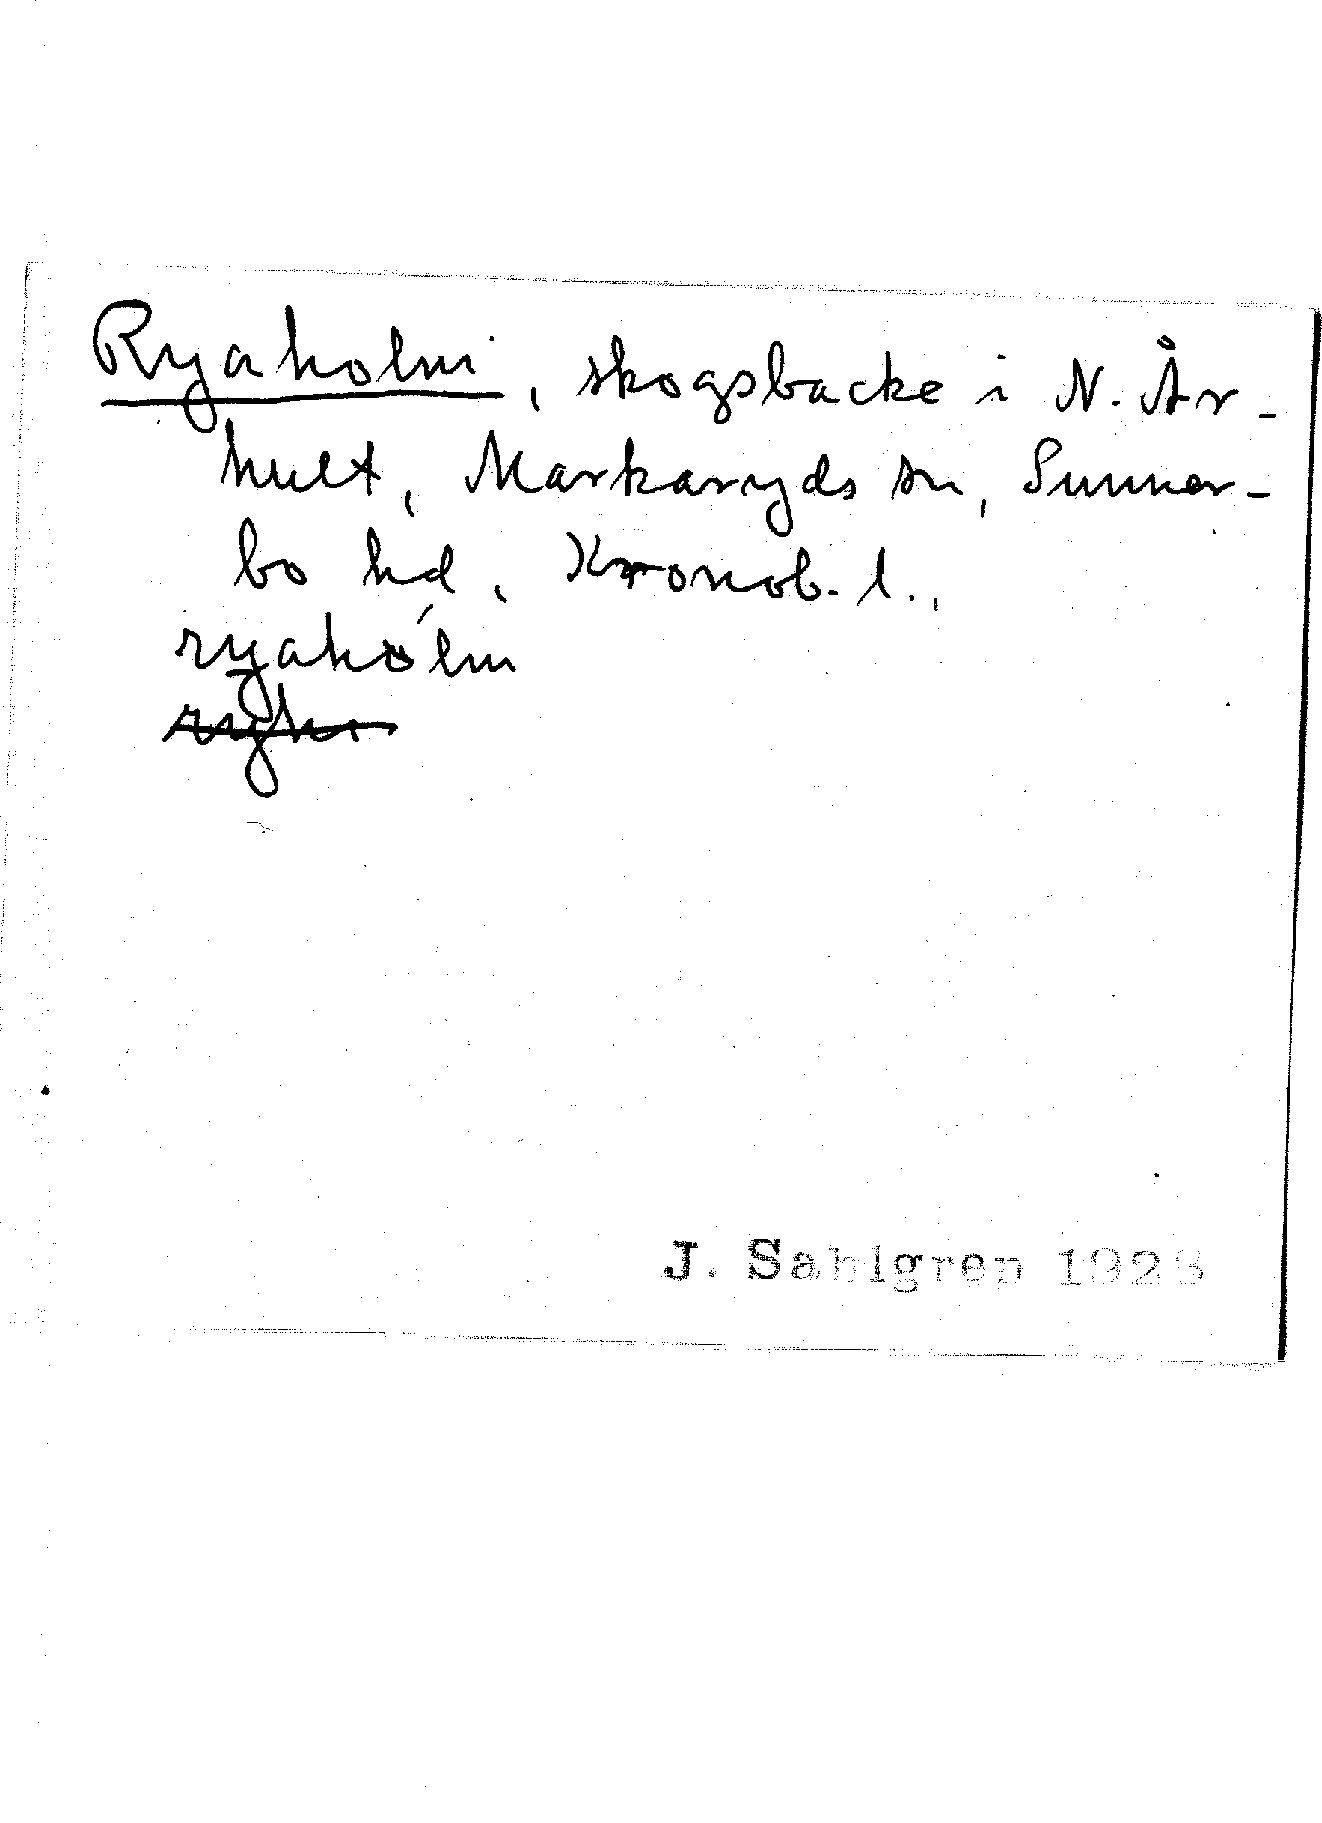 Ryaholm, skogsbacke i N. År-
hult, Markaryds sn, Sunner-
bo hd, Kronob. l.,
ryahólm
J. Sahlgren 1928